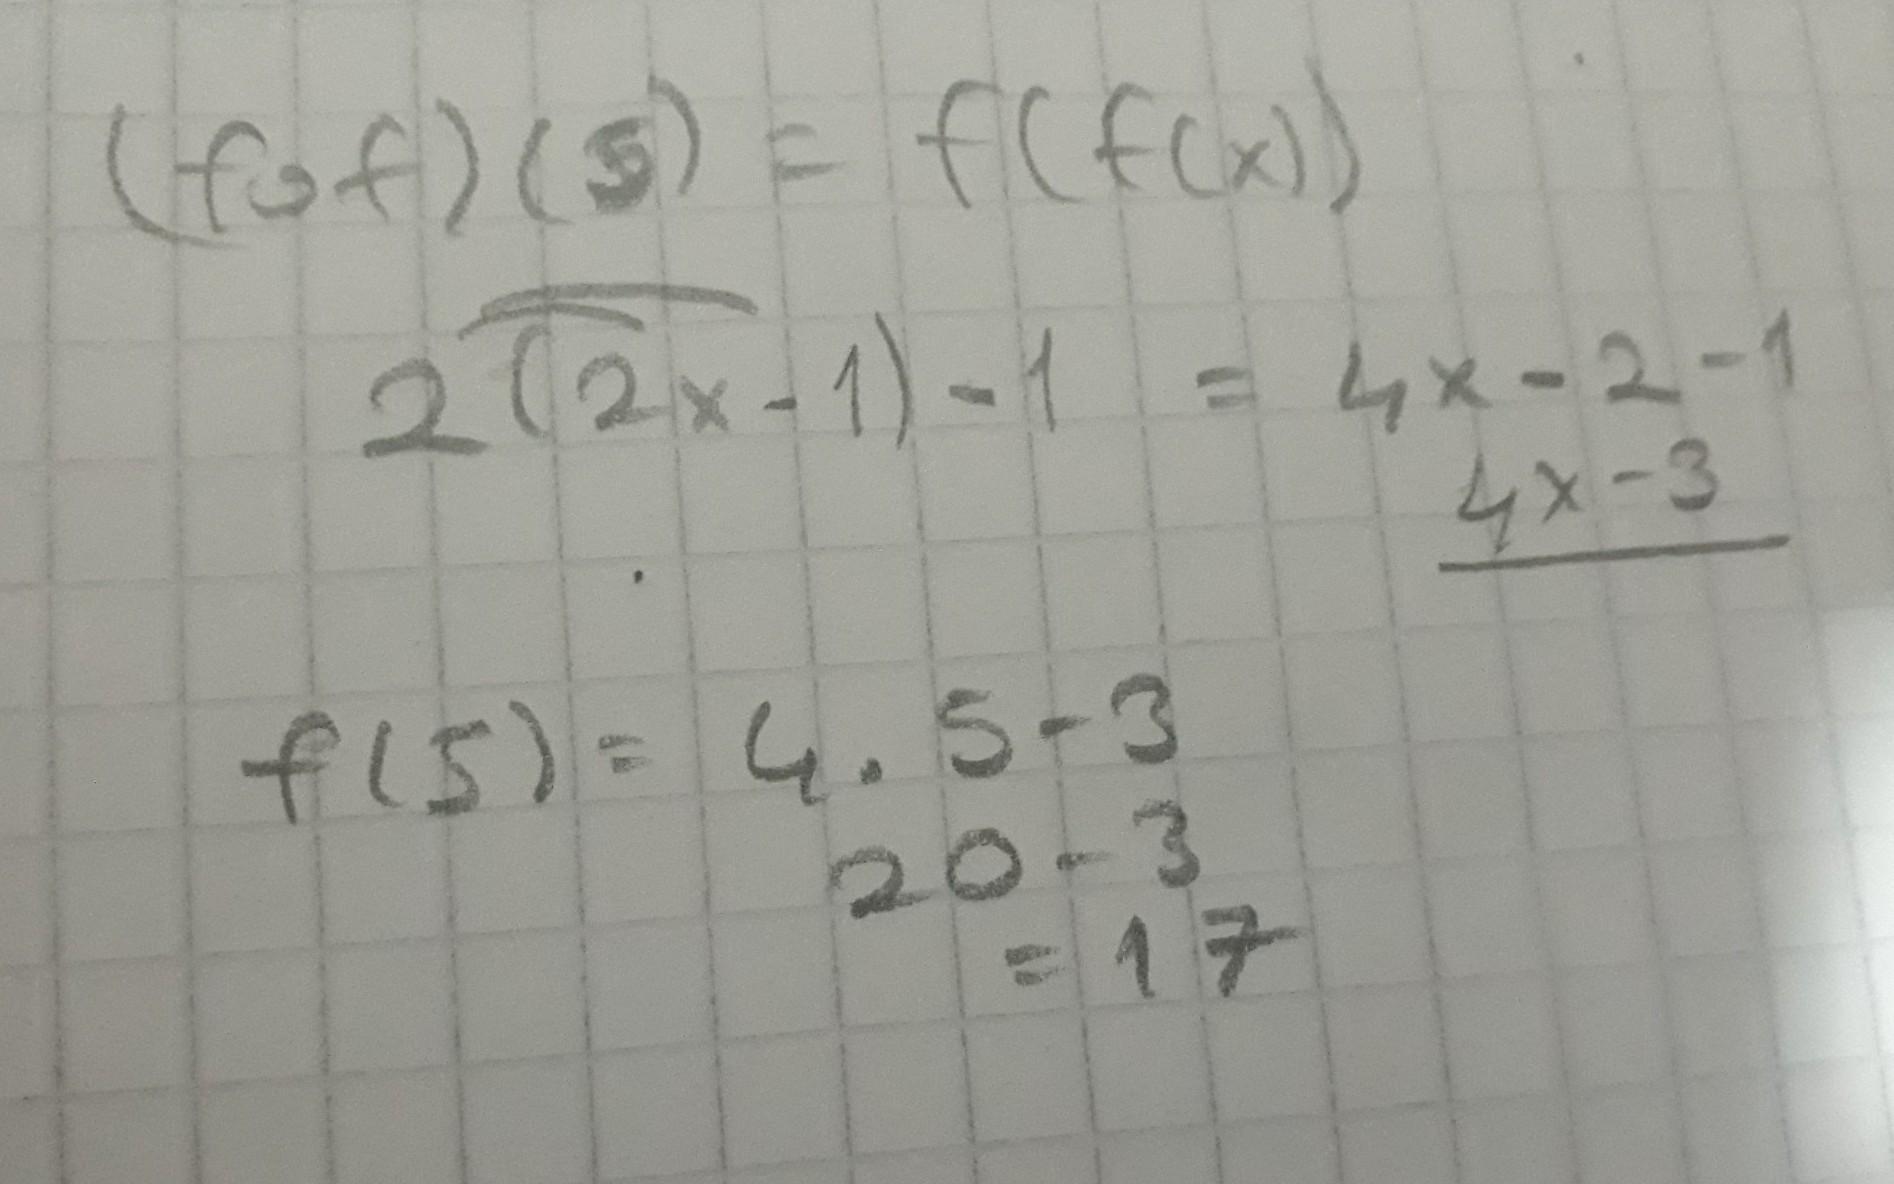 (fof)(5) = f(f(x))
2(2x-1)-1 = 4x-2-1
4x-3
f(5) = 4.5-3
20-3
=17